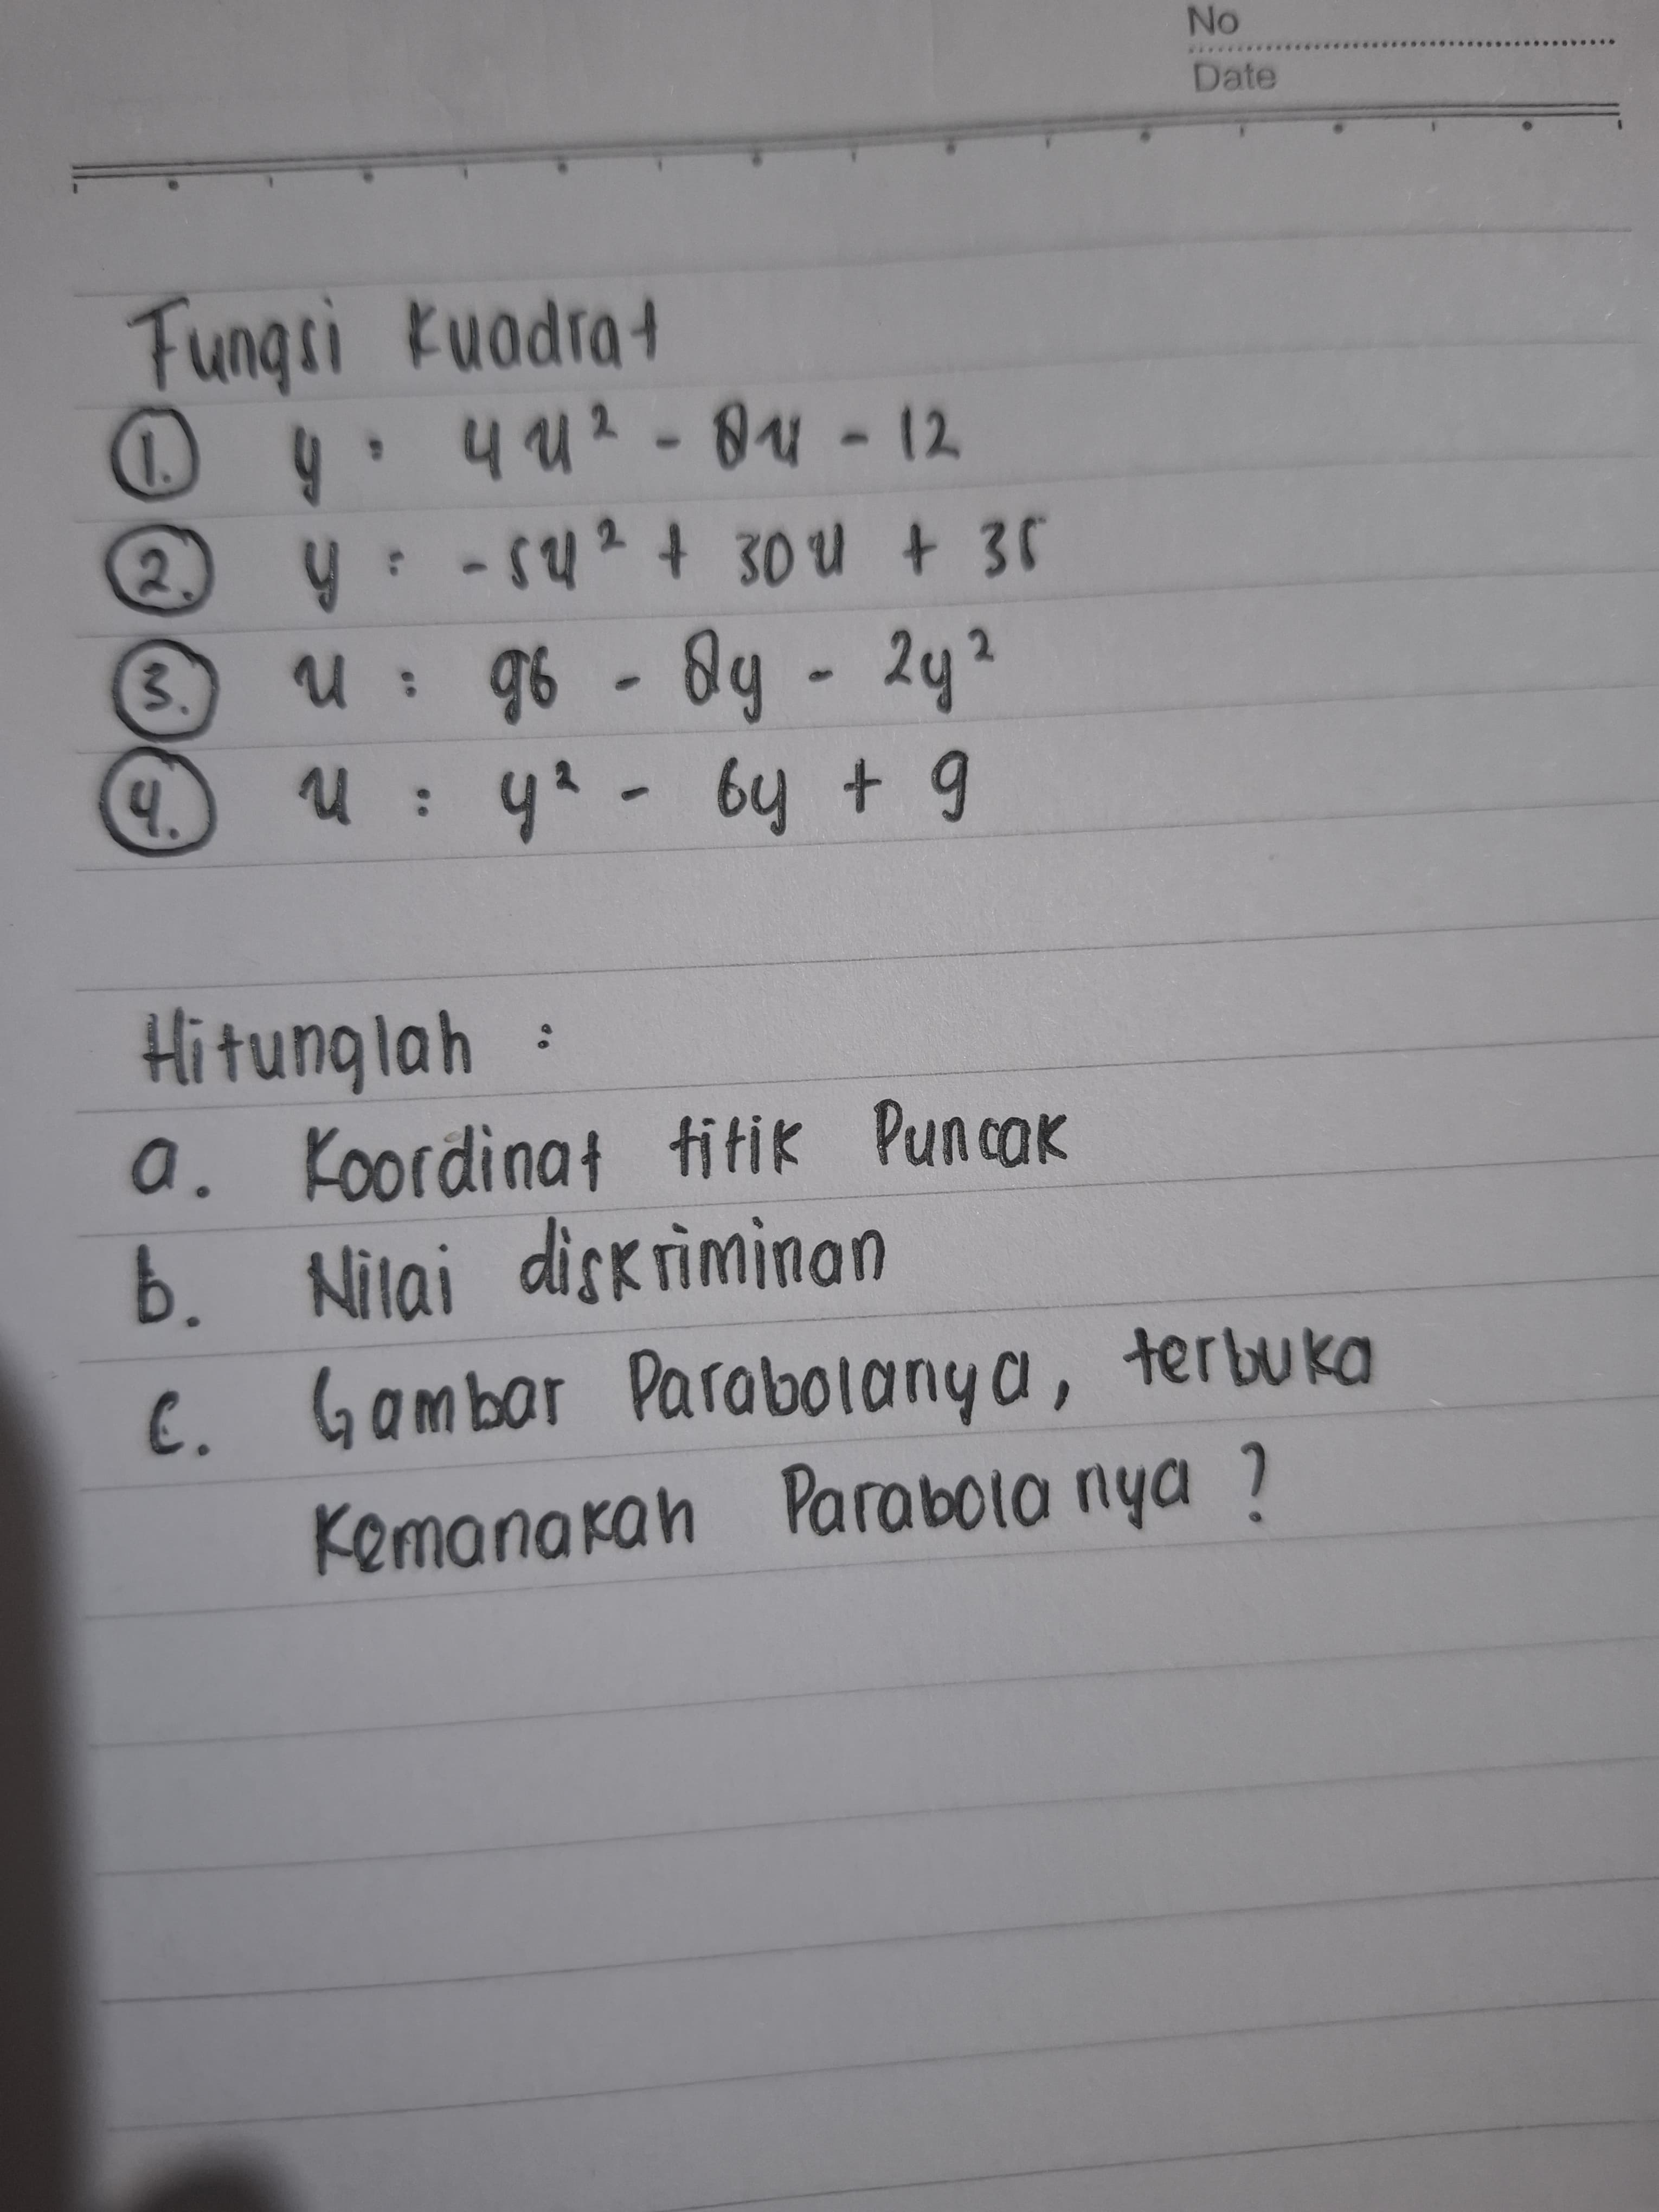 No
Date
Fungsi Kuadrat
1. y = 4x² - 8x - 12
2. y = -5x² + 30x + 35
3. x = 96 - 8y - 2y²
4. x = y² - 6y + 9
Hitunglah :
a. Koordinat titik Puncak
b. Nilai diskriminan
c. Gambar Parabolanya, terbuka
Kemanakah Parabolanya ?